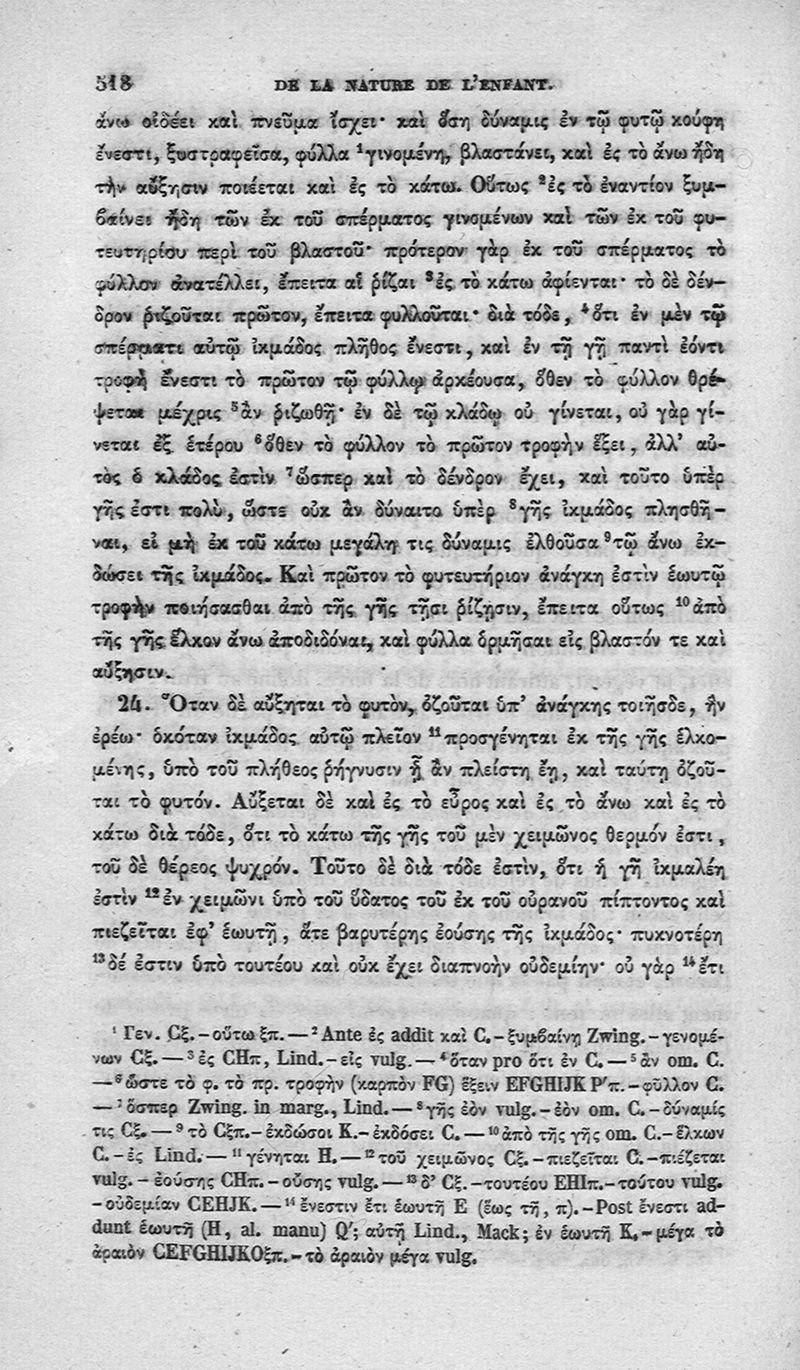 518 DE LA NATURE DE L'ENFANT.
ἄνω οἰδέει καὶ πνεῦμα ἴσχει· καὶ ὅση δύναμις ἐν τῷ φυτῷ κούφη
ἔνεστι, ξυστραφεῖσα, φύλλα ¹γινομένη, βλαστάνει, καὶ ἐς τὸ ἄνω ἤδη
τὴν αὔξησιν ποιέεται καὶ ἐς τὸ κάτω. Οὕτως ²ἐς τὸ ἐναντίον ξυμ-
βαίνει ἤδη τῶν ἐκ τοῦ σπέρματος γινομένων καὶ τῶν ἐκ τοῦ φυ-
τευτηρίου περὶ τοῦ βλαστοῦ· πρότερον γὰρ ἐκ τοῦ σπέρματος τὸ
φύλλον ἀνατέλλει, ἔπειτα αἱ ῥίζαι ³ἐς τὸ κάτω ἀφίενται· τὸ δὲ δέν-
δρον ῥιζοῦται πρῶτον, ἔπειτα φυλλοῦται· διὰ τόδε, ⁴ὅτι ἐν μὲν τῷ
σπέρματι αὐτῷ ἰκμάδος πλῆθος ἔνεστι, καὶ ἐν τῇ γῇ παντὶ ἐόντι
τροφὴ ἔνεστι τὸ πρῶτον τῷ φύλλῳ ἀρκέουσα, ὅθεν τὸ φύλλον θρέ-
ψεται μέχρις ⁵ἂν ῥιζωθῇ· ἐν δὲ τῷ κλάδῳ οὐ γίνεται, οὐ γὰρ γί-
νεται ἐξ ἑτέρου ⁶ὅθεν τὸ φύλλον τὸ πρῶτον τροφὴν ἕξει, ἀλλ' αὐ-
τὸς ὁ κλάδος ἐστὶν ⁷ὥσπερ καὶ τὸ δένδρον ἔχει, καὶ τοῦτο ὑπὲρ
γῆς ἐστι πολὺ, ὥστε οὐκ ἂν δύναιτο ὑπὲρ ⁸γῆς ἰκμάδος πλησθῆ-
ναι, εἰ μὴ ἐκ τοῦ κάτω μεγάλη τις δύναμις ἐλθοῦσα ⁹τῷ ἄνω ἐκ-
δώσει τῆς ἰκμάδος. Καὶ πρῶτον τὸ φυτευτήριον ἀνάγκη ἐστὶν ἑωυτῷ
τροφὴν ποιήσασθαι ἀπὸ τῆς γῆς τῇσι ῥίζῃσιν, ἔπειτα οὕτως ¹⁰ἀπὸ
τῆς γῆς ἕλκον ἄνω ἀποδιδόναι, καὶ φύλλα ὁρμῆσαι εἰς βλαστόν τε καὶ
αὔξησιν.
24. Ὅταν δὲ αὔξηται τὸ φυτὸν, ὀζοῦται ὑπ' ἀνάγκης τοιῆσδε, ἣν
ἐρέω· ὁκόταν ἰκμάδος αὐτῷ πλεῖον ¹¹προσγένηται ἐκ τῆς γῆς ἑλκο-
μένης, ὑπὸ τοῦ πλήθεος ῥήγνυσιν ᾗ ἂν πλείστη ἔῃ, καὶ ταύτῃ ὀζοῦ-
ται τὸ φυτόν. Αὔξεται δὲ καὶ ἐς τὸ εὖρος καὶ ἐς τὸ ἄνω καὶ ἐς τὸ
κάτω διὰ τόδε, ὅτι τὸ κάτω τῆς γῆς τοῦ μὲν χειμῶνος θερμόν ἐστι,
τοῦ δὲ θέρεος ψυχρόν. Τοῦτο δὲ διὰ τόδε ἐστὶν, ὅτι ἡ γῆ ἰκμαλέη
ἐστὶν ¹²ἐν χειμῶνι ὑπὸ τοῦ ὕδατος τοῦ ἐκ τοῦ οὐρανοῦ πίπτοντος καὶ
πιεζεῖται ἐφ' ἑωυτῇ, ἅτε βαρυτέρης ἐούσης τῆς ἰκμάδος· πυκνοτέρη
¹³δέ ἐστιν ὑπὸ τουτέου καὶ οὐκ ἔχει διαπνοὴν οὐδεμίην· οὐ γὰρ ¹⁴ἔτι
¹ Γεν. Cξ. – οὕτω ξπ. — ² Ante ἐς addit καὶ C. – ξυμβαίνῃ Zwing. – γενομέ-
νων Cξ. — ³ ἐς CHπ, Lind. – εἰς vulg. — ⁴ ὅταν pro ὅτι ἐν C. — ⁵ ἂν om. C.
— ⁶ ὥστε τὸ φ. τὸ πρ. τροφὴν (καρπὸν FG) ἕξειν EFGHIJK P'π. – φῦλλον C.
— ⁷ ὅσπερ Zwing. in marg., Lind. — ⁸ γῆς ἐὸν vulg. – ἐὸν om. C. – δύναμίς
τις Cξ. — ⁹ τὸ Cξπ. – ἐκδώσοι K. – ἐκδόσει C. — ¹⁰ ἀπὸ τῆς γῆς om. C. – ἕλκων
C. – ἐς Lind. — ¹¹ γένηται H. — ¹² τοῦ χειμῶνος Cξ. – πιεζεῖται C. – πιέζεται
vulg. – ἐούσης CHπ. – οὔσης vulg. — ¹³ δ' Cξ. – τουτέου EHIπ. – τούτου vulg.
– οὐδεμίαν CEHJK. — ¹⁴ ἔνεστιν ἔτι ἑωυτῇ E (ἕως τῇ, π). – Post ἔνεστι ad-
dunt ἑωυτῇ (H, al. manu) Q'; αὐτῇ Lind., Mack; ἐν ἑωυτῇ K. – μέγα τὸ
ἀραιὸν CEFGHIJKOξπ. – τὸ ἀραιὸν μέγα vulg.